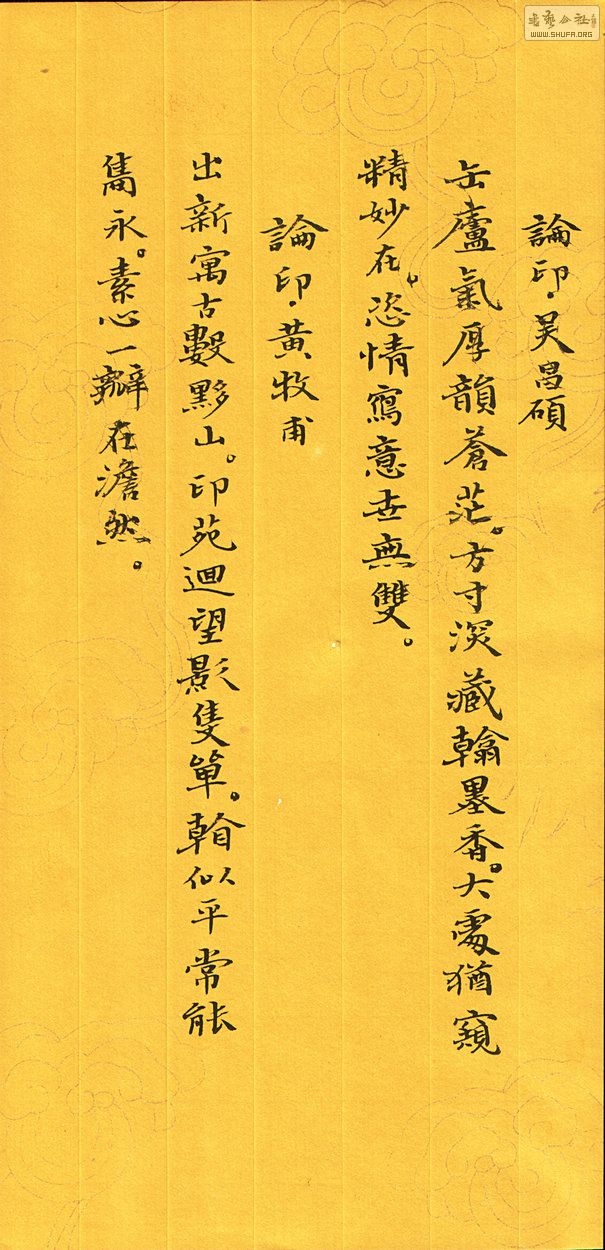 論印·吴昌碩
缶廬氣厚韻蒼茫。方寸深藏翰墨香。大處猶窺
精妙在。恣情寫意世無雙。
論印·黄牧甫
出新寓古數黟山。印苑迴望影隻單。翰似平常能
雋永。素心一瓣在澹然。
書藝公社
WWW.SHUFA.ORG